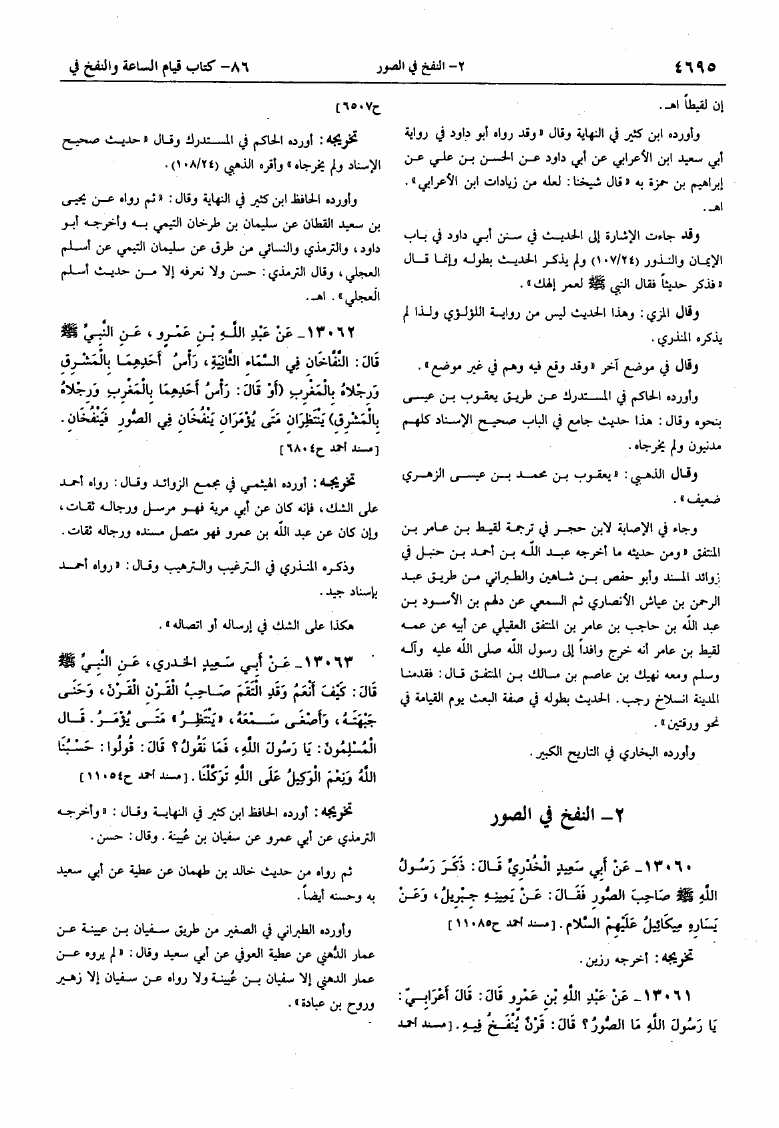 ٤٦٩٥
٢- النفخ في الصور
٨٦- كتاب قيام الساعة والنفخ في
إن لقيطاً اهـ.
وأورده ابن كثير في النهاية وقال «وقد رواه أبو داود في رواية
أبي سعيد ابن الأعرابي عن أبي داود عـن الحسـن بـن علـي عـن
إبراهيم بن حمزة به «قال شيخنا: لعله من زيادات ابن الأعرابي».
اهـ.
وقد جاءت الإشارة إلى الحديث في سنن أبي داود في بـاب
الإيمـان والنـذور (١٠٧/٢٤) ولم يذكـر الحديث بطولـه وإنمـا قـال
«فذكر حديثاً فقال النبي ﷺ لعمر إلهك».
وقال المزي: وهذا الحديث ليس من روايـة اللؤلـؤي ولـذا لم
يذكره المنذري.
وقال في موضع آخر «وقد وقع فيه وهم في غير موضع».
وأورده الحاكم في المستدرك عـن طريـق يعقـوب بـن عيسـى
بنحوه وقال: هذا حديث جامع في الباب صحيح الإسناد كلهـم
مدنيون ولم يخرجاه.
وقـال الذهبي: «يعقـوب بـن محمـد بـن عيسـى الزهـري
ضعيف».
وجاء في الإصابة لابن حجـر في ترجمـة لقيـط بـن عـامر بن
المنتفق «ومن حديثه ما أخرجه عبـد اللـه بـن أحمـد بن حنبل في
زوائد المسند وأبو حفص بـن شـاهين والطبرانـي مـن طريـق عبـد
الرحمن بن عياش الأنصاري ثم السمعي عن دلهم بن الأسـود بـن
عبد الله بن حاجب بن عامر بن المنتفق العقيلي عن أبيه عن عمـه
لقيط بن عامر أنه خرج وافداً إلى رسول الله صلى الله عليه وآلـه
وسلم ومعه نهيك بن عاصم بن مالـك بن المنتـفق قـال: فقدمنـا
المدينة انسلاخ رجب. الحديث بطوله في صفة البعث يوم القيامة في
نحو ورقتين».
وأورده البخاري في التاريخ الكبير.
٢- النفخ في الصور
١٣٠٦٠- عَنْ أَبِي سَعِيدٍ الْخُدْرِيِّ قَـالَ: ذَكَـرَ رَسُـولُ
اللَّهِ ﷺ صَاحِبَ الصُّورِ فَقَـالَ: عَـنْ يَمِينِـهِ جِبْرِيلُ، وَعَـنْ
يَسَارِهِ مِيكَائِيلُ عَلَيْهِمُ السَّلَام. [مسند أحمد ح١١٠٨٥]
تخريجه: أخرجه رزين.
١٣٠٦١- عَنْ عَبْدِ اللَّهِ بْنِ عَمْرٍو قَالَ: قَالَ أَعْرَابِـيٌّ:
يَا رَسُولَ اللَّهِ مَا الصُّورُ؟ قَالَ: قَرْنٌ يُنْفَـخُ فِيهِ. [مسند أحمد
ح٦٥٠٧]
تخريجه: أورده الحاكم في المستدرك وقـال «حديث صحيح
الإسناد ولم يخرجاه» وأقره الذهبي (١٠٨/٢٤).
وأورده الحافظ ابن كثير في النهاية وقال: «ثم رواه عـن يحيى
بن سعيد القطان عن سليمان بن طرخان التيمي بـه وأخرجـه أبـو
داود، والترمذي والنسائي من طرق عن سليمان التيمي عن أسـلم
العجلي، وقال الترمذي: حسن ولا نعرفه إلا مـن حديـث أسلم
العجلي». اهـ.
١٣٠٦٢- عَنْ عَبْدِ اللَّهِ بْنِ عَمْـرٍو، عَـنِ النَّبِيِّ ﷺ
قَالَ: النَّفَّاخَانِ فِي السَّمَاءِ الثَّانِيَةِ، رَأْسُ أَحَدِهِمَـا بِالْمَشْرِقِ
وَرِجْلَاهُ بِالْمَغْرِبِ (أَوْ قَالَ: رَأْسُ أَحَدِهِمَا بِالْمَغْرِبِ وَرِجْلَاهُ
بِالْمَشْرِقِ) يَنْتَظِرَانِ مَتَى يُؤْمَرَانِ يَنْفُخَانِ فِي الصُّورِ فَيَنْفُخَانِ.
[مسند أحمد ح٦٨٠٤]
تخريجه: أورده الهيثمي في مجمع الزوائد وقـال: رواه أحمـد
على الشك، فإنه كان عن أبي مرية فهـو مرسـل ورجالـه ثقـات،
وإن كان عن عبد الله بن عمرو فهو متصل مسنده ورجاله ثقات.
وذكـره المنـذري في الـترغيب والـترهيب وقـال: «رواه أحمـد
بإسناد جيد.
هكذا على الشك في إرساله أو اتصاله».
١٣٠٦٣- عَـنْ أَبِـي سَـعِيدٍ الخدري، عَـنِ النَّبِـيِّ ﷺ
قَالَ: كَيْفَ أَنْعَمُ وَقَدِ الْتَقَمَ صَـاحِبُ الْقَرْنِ الْقَرْنَ، وَحَنَى
جَبْهَتَـهُ، وَأَصْغَى سَـمْعَهُ، «يَنْتَظِـرُ» مَتَـى يُؤْمَـرُ. قَـالَ
الْمُسْلِمُونَ: يَا رَسُولَ اللَّهِ، فَمَا نَقُولُ؟ قَالَ: قُولُوا: حَسْبُنَا
اللَّهُ وَنِعْمَ الْوَكِيلُ عَلَى اللَّهِ تَوَكَّلْنَا. [مسند أحمد ح١١٠٥٤]
تخريجه: أورده الحافظ ابن كثير في النهايـة وقـال: «وأخرجـه
الترمذي عن أبي عمرو عن سفيان بن عُيينة. وقال: حسن.
ثم رواه من حديث خالد بن طهمان عن عطية عن أبي سعيد
به وحسنه أيضاً.
وأورده الطبراني في الصغير من طريـق سـفيان بن عيينة عـن
عمار الدُّهني عن عطية العوفي عن أبي سعيد وقال: «لم يروه عـن
عمار الدهني إلا سفيان بـن عُيينـة ولا رواه عـن سـفيان إلا زهـير
وروح بن عبادة».